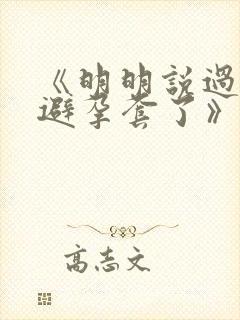 《明明説過
避孕套了》
高志文